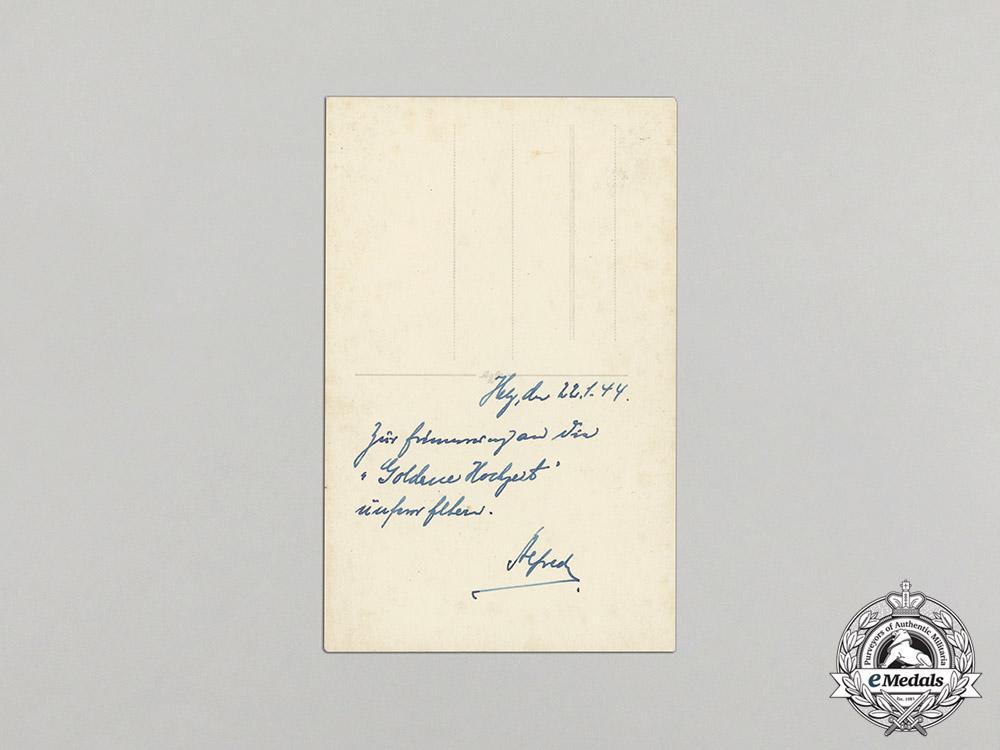 Hbg, den 22.1.44.
Zur Erinnerung an die
"Goldene Hochzeit"
unserer Eltern.
Alfred
Purveyors of Authentic Militaria
eMedals
Est. 1985